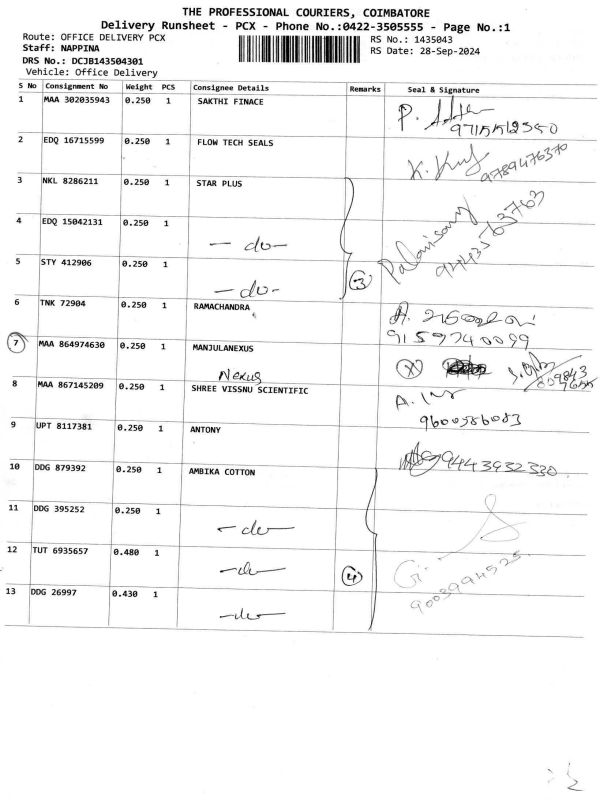 THE PROFESSIONAL COURIERS, COIMBATORE
Delivery Runsheet - PCX - Phone No.:0422-3505555 - Page No.:1
Route: OFFICE DELIVERY PCX
RS No.: 1435043
Staff: NAPPINA
RS Date: 28-Sep-2024
DRS No.: DCJB143504301
Vehicle: Office Delivery
S No Consignment No Weight PCS Consignee Details Remarks Seal & Signature
1 MAA 302035943 0.250 1 SAKTHI FINACE
2 EDQ 16715599 0.250 1 FLOW TECH SEALS K. 9789476370
3 NKL 8286211 0.250 1 STAR PLUS
4 EDQ 15042131 0.250 1 - do - Palanisamy
5 STY 412906 0.250 1 - do - 3 9443563763
6 TNK 72904 0.250 1 RAMACHANDRA
9159740099
7 MAA 864974630 0.250 1 MANJULANEXUS X
Nexus
8 MAA 867145209 0.250 1 SHREE VISSNU SCIENTIFIC A.
9600586083
9 UPT 8117381 0.250 1 ANTONY 9443932330
10 DDG 879392 0.250 1 AMBIKA COTTON
11 DDG 395252 0.250 1 - do -
12 TUT 6935657 0.480 1 - do - 4 G.
9003994525
13 DDG 26997 0.430 1 - do -